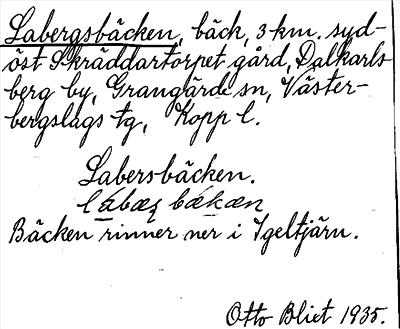 Labergsbäcken, bäck, 3 km. syd-
öst Skräddartorpet gård, Dalkarls-
berg by, Grangärde sn, Väster-
bergslags tg, Kopp l.
Labersbäcken.
bækæn
Bäcken rinner ner i Igeltjärn.
Otto Blixt 1935.